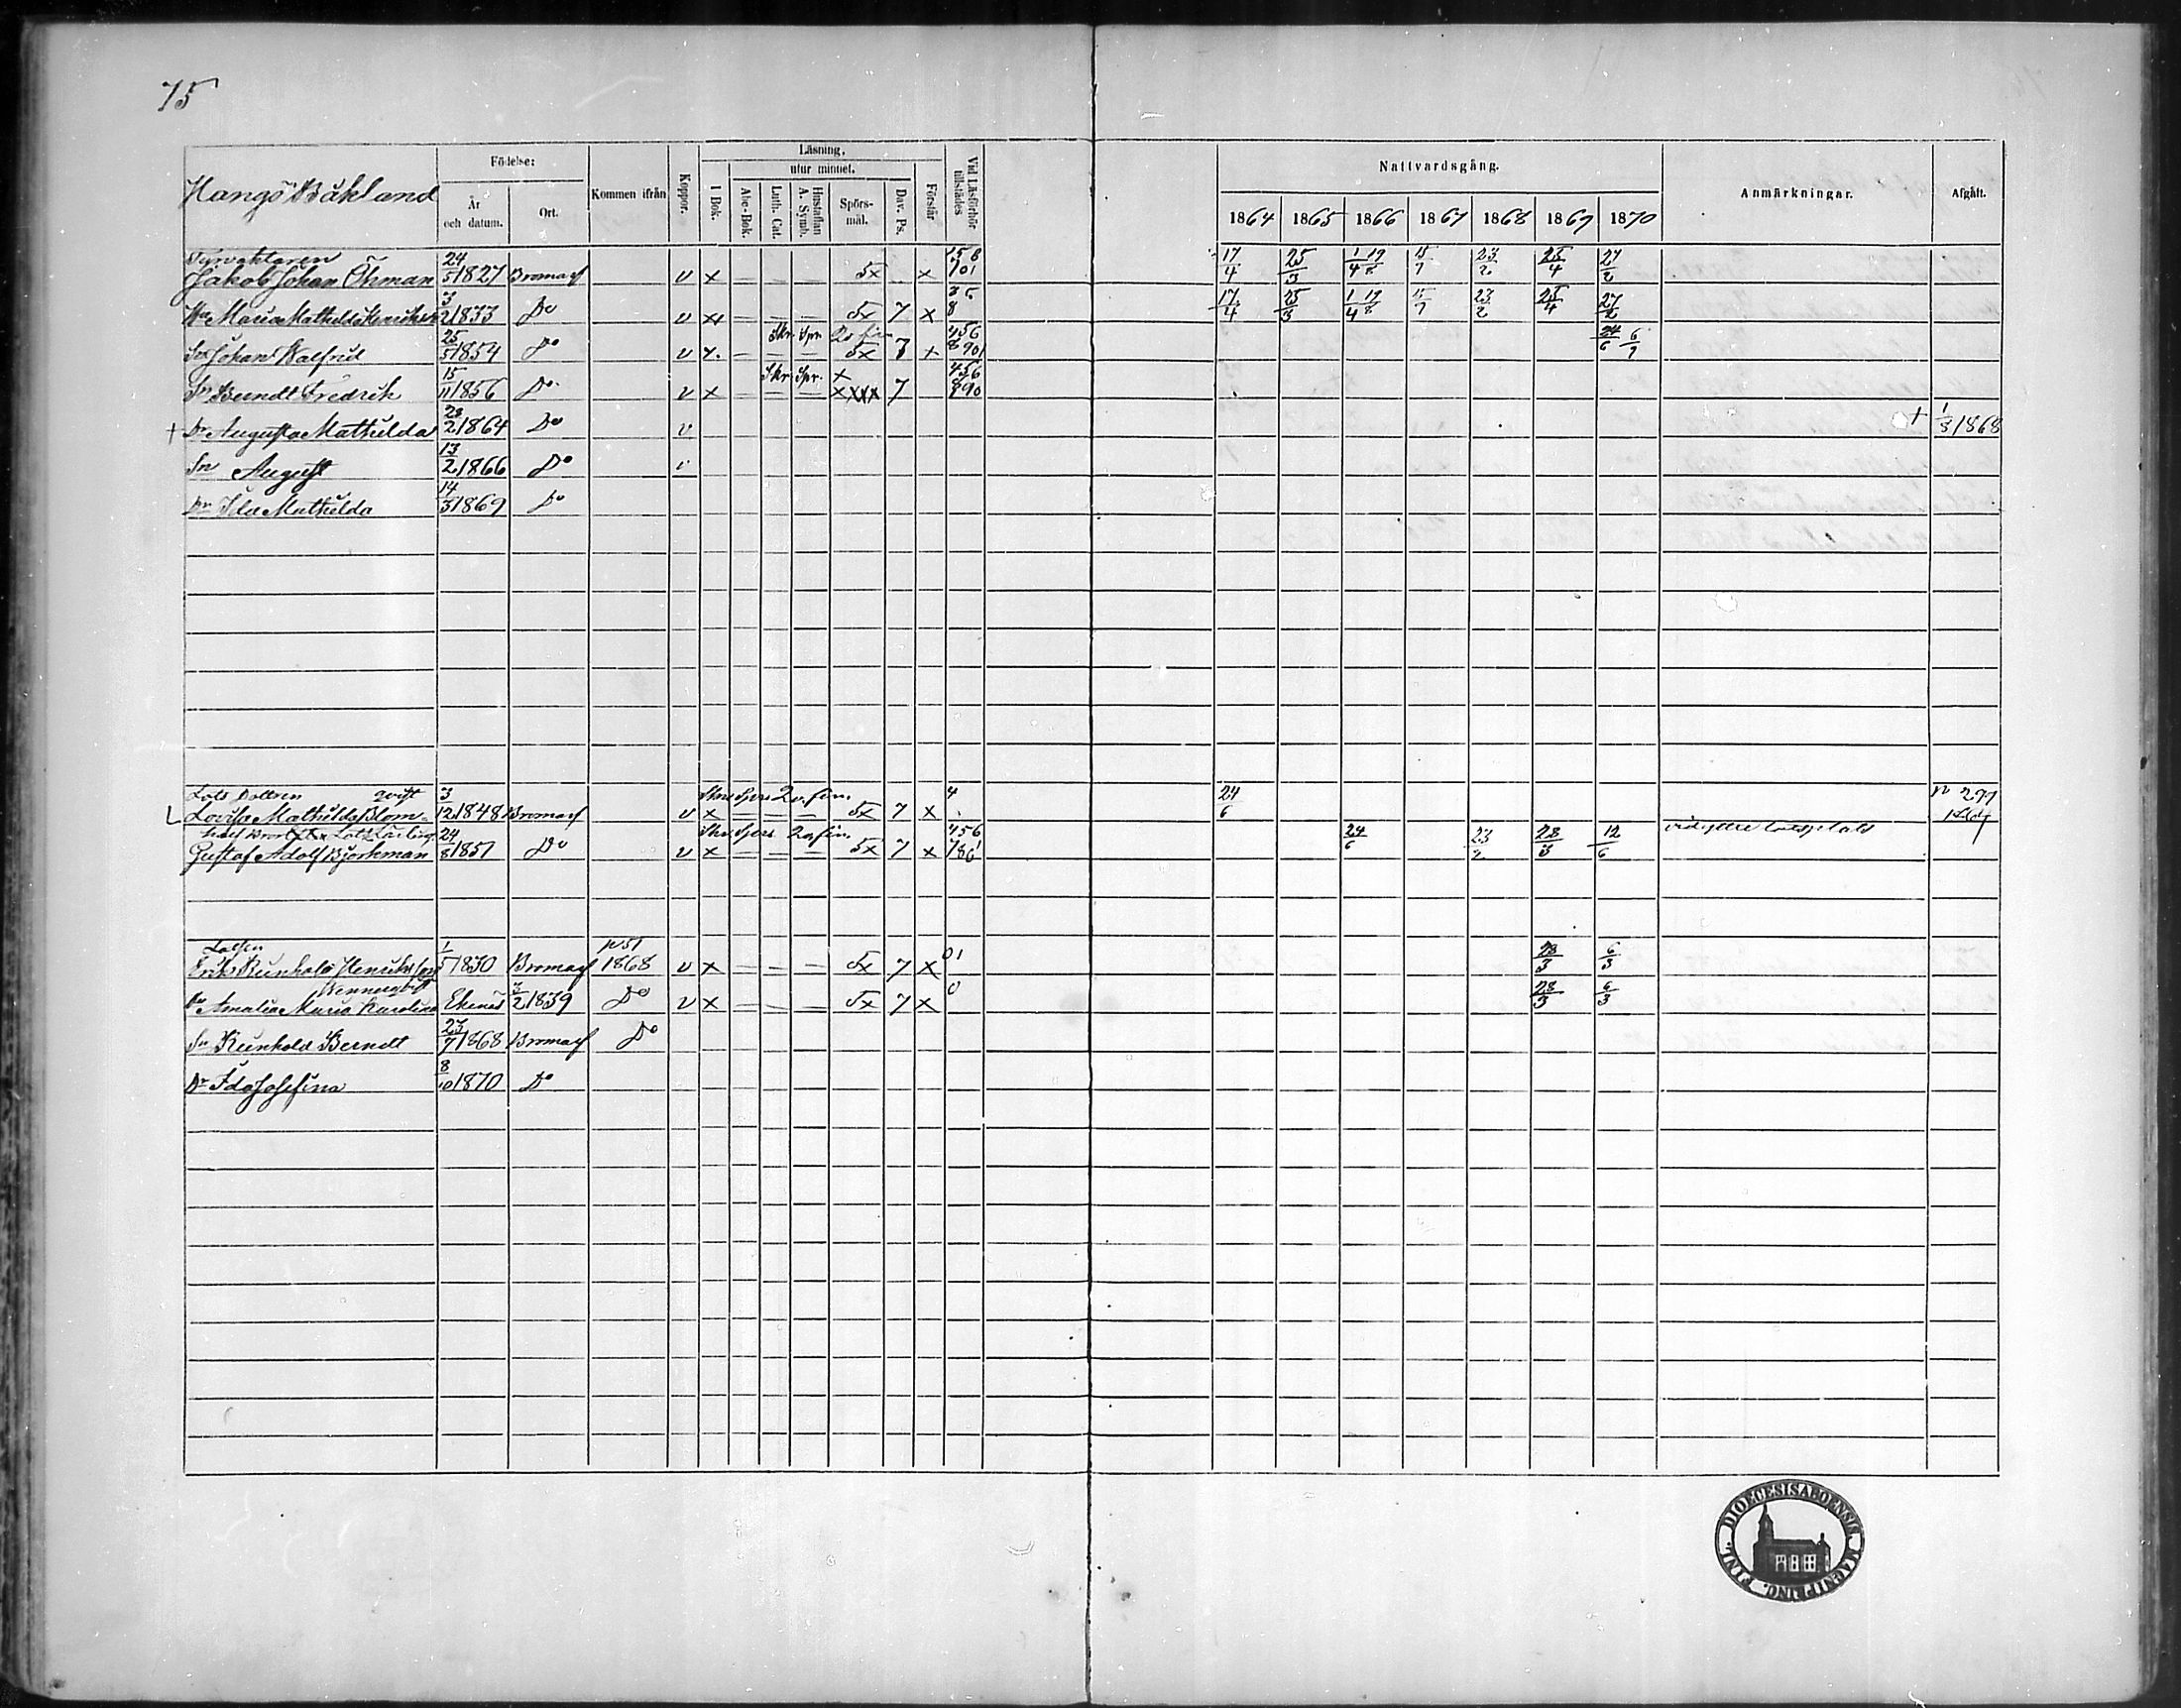 75
Hangö Båkland
Födelse:
År och datum.
Ort.
Kommen ifrån
Koppor.
Läsning,
utur minnet.
I Bok.
Abc-Bok.
Luth. Cat.
Hustaflan A. Symb.
Spörs-mål.
Dav. Ps.
Förstår
Vid Läsförhör tillstädes
Nattvardsgång.
1864 1865 1866 1867 1868 1869 1870
Anmärkningar.
Afgått.
Fyrvaktaren
Jakob Johan Öhman 24/5 1827 Bromarf v x — — — 5x x 17/4 25/3 1/4 19/8 15/7 23/2 25/4 27/2
Hu Maria Mathilda Henriksdr 3/2 1833 Do v x — — — 5x 7 x 8 17/4 25/3 1/4 19/8 15/7 23/2 25/4 27/2
Sn Johan Walfrid 25/5 1854 Do v x — Skr. Spr. 5x 7 + 456 8901 24/6 6/9
Sn Berndt Fredrik 15/11 1856 Do v x — Skr. Spr. + xxxx 7 456 890
+ Dr Augusta Mathilda 23/2 1864 Do v + 1/3 1868
Sn August 13/2 1866 Do v
Dr Ida Mathilda 14/3 1869 Do
Lots Dottren
Lovisa Mathilda Blom 3/12 1848 Bromarf v x — — — 5x 7 x 4 24/6 p 277
Gustaf Adolf Björkman 24/8 1851 Do v x — — — 5x 7 x 456 24/6 23/2 28/3 12/6
Lotsen
Erik Reinhold Henriksson 1/5 1830 Bromarf p 51 1868 v x — — — 5x 7 x 01 28/3 6/3
Hu Amalia Maria Karolina Ekenäs 3/2 1839 Do v x — — — 5x 7 x 0 28/3 6/3
Sn Reinhold Berndt 23/7 1868 Bromarf Do
Dr Ida Josefina 8/10 1870 Do
DIOECESIS ABOENSIS MAGNI PRINC. FINL.